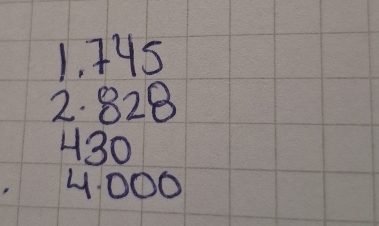 1.745
2.828
430
4.000